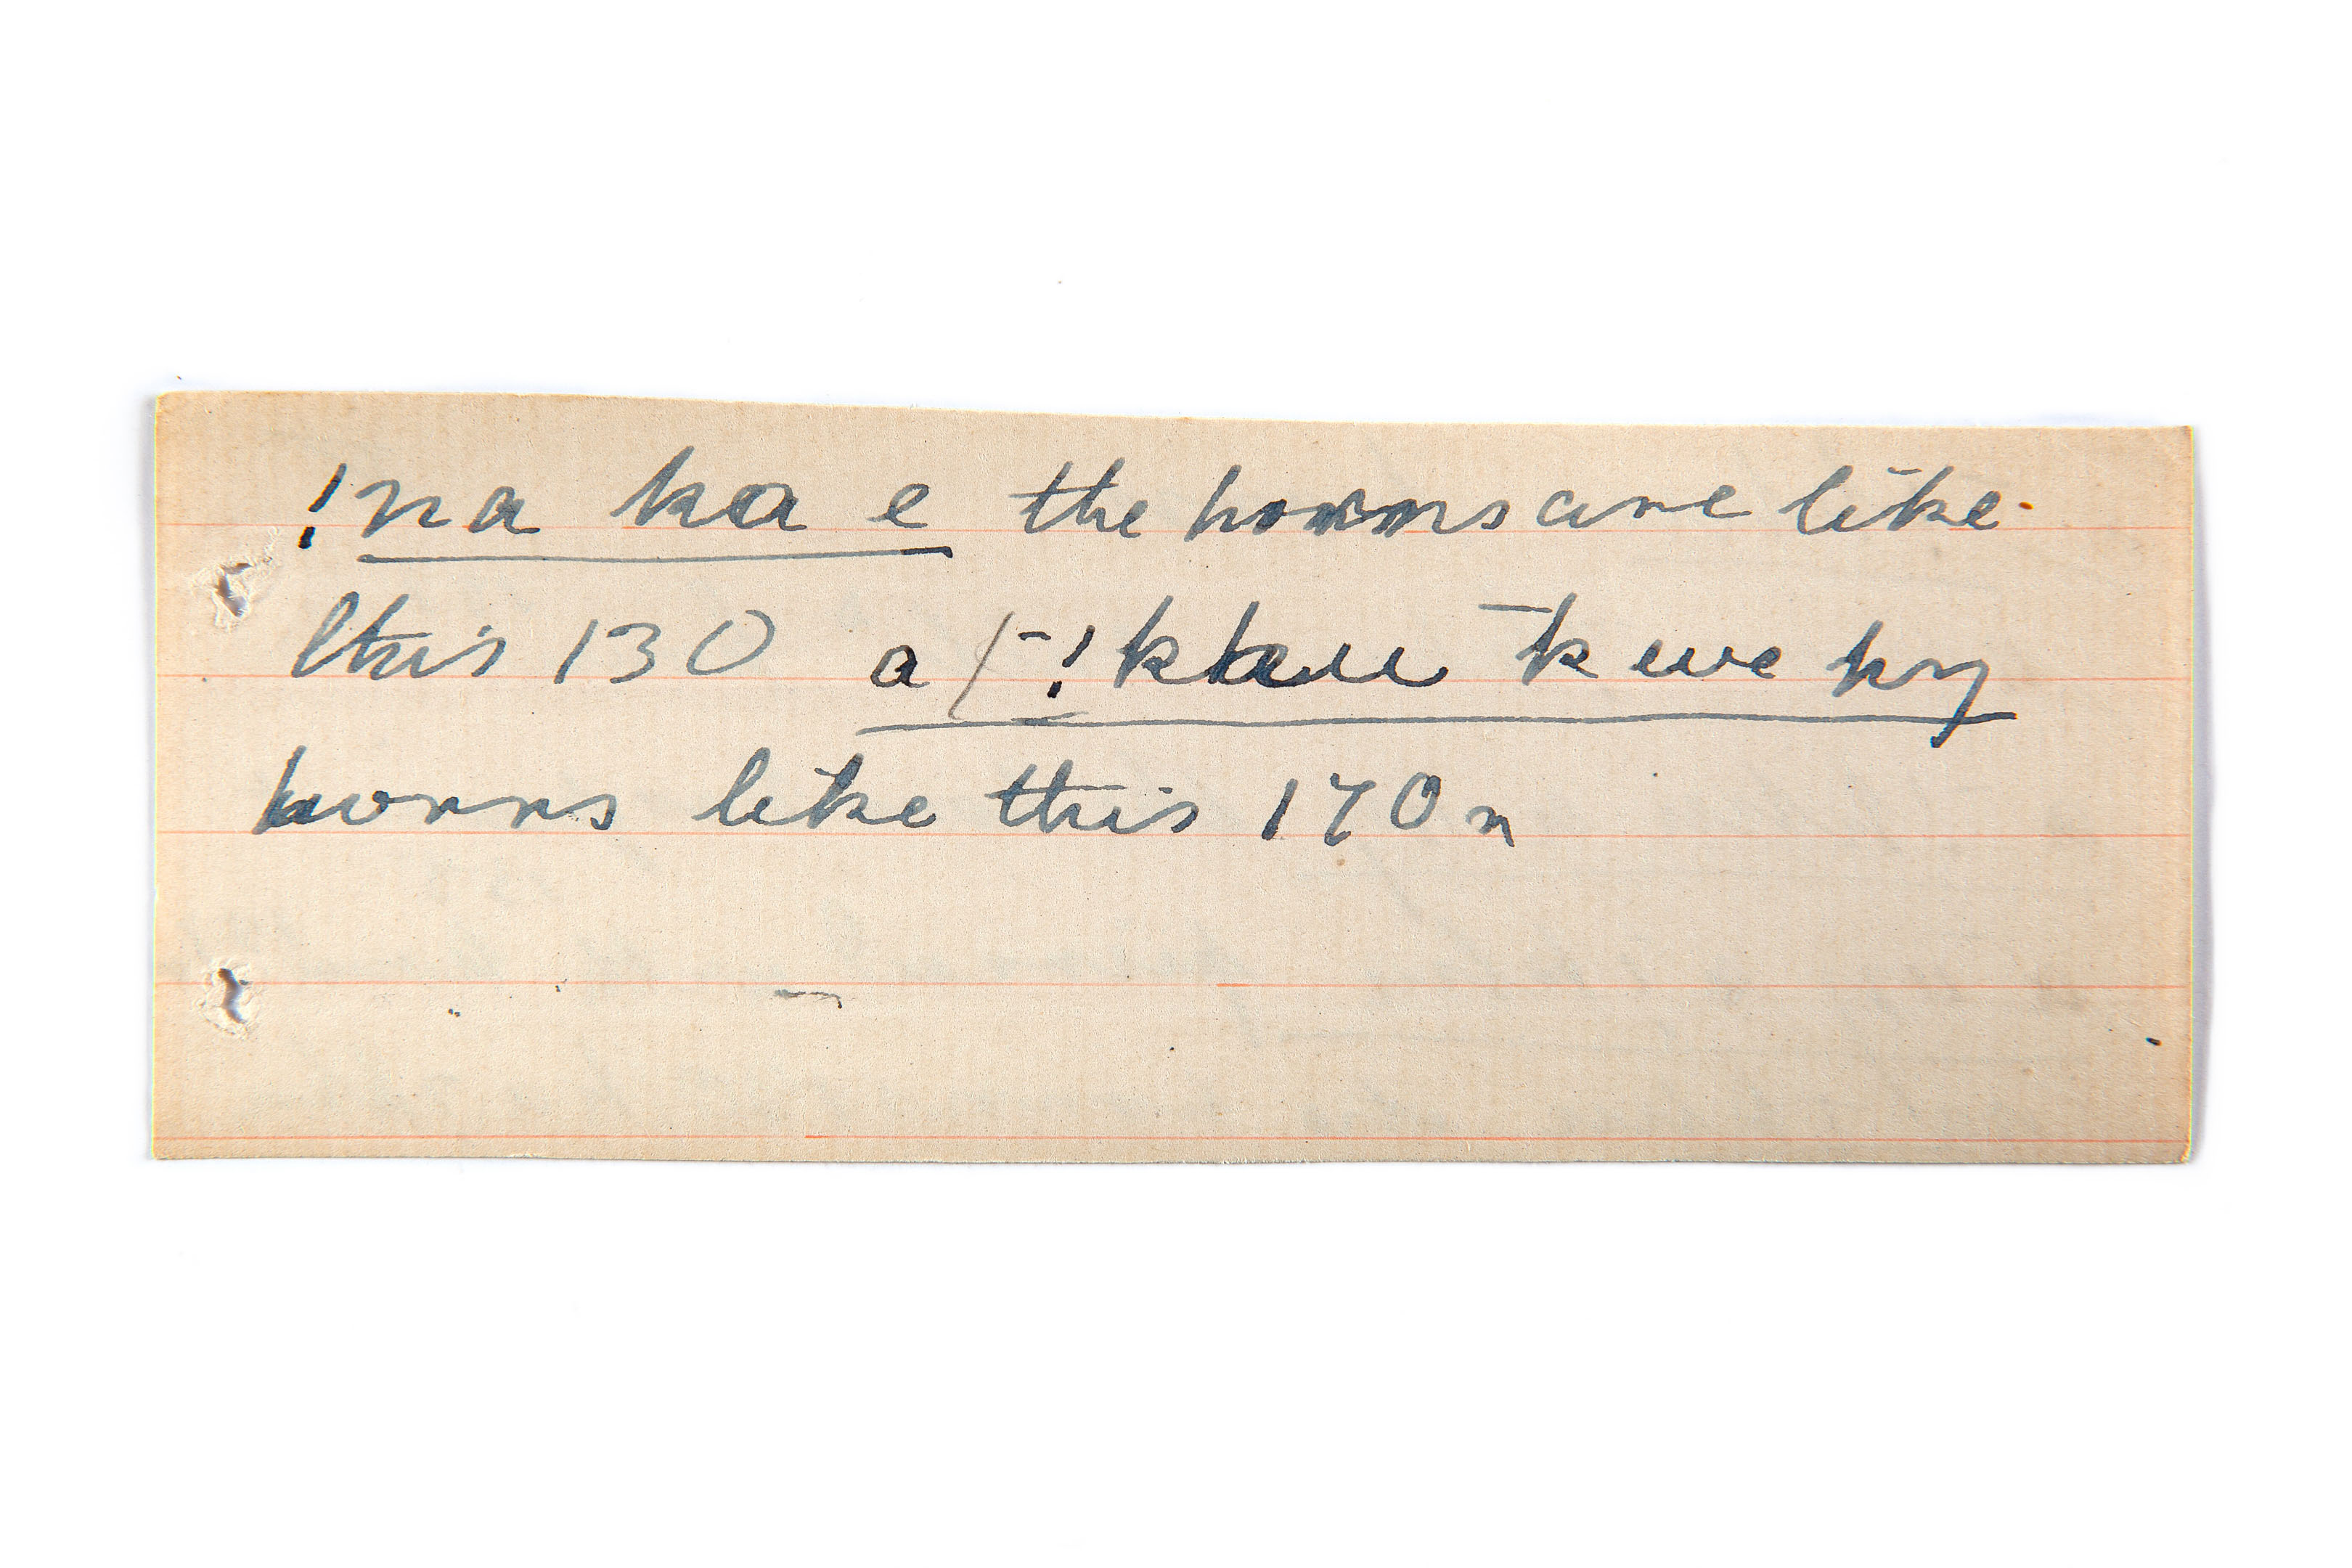 !na ka e the horns are like
this 130 a /-! kkau k̄ we hy
horns like this 170n